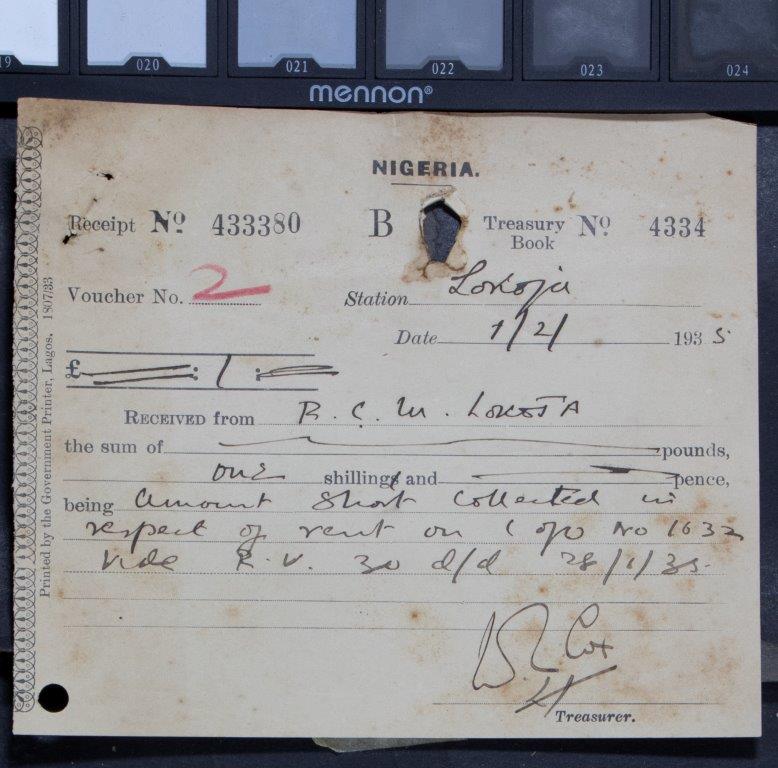 19 020 021 022 023 024
mennon®
NIGERIA.
Receipt No. 433380 B Treasury Book No. 4334
Voucher No. 2 Station Lokoja
Date 1/2/ 1935
£ : 1 :
RECEIVED from R. C. M. LOKOJA
the sum of pounds,
one shillings and pence,
being Amount Short Collected in
respect of rent on C of O No 1632
Vide R. V. 30 d/d 28/1/35.
Cox
Treasurer.
Printed by the Government Printer, Lagos. 1807/33